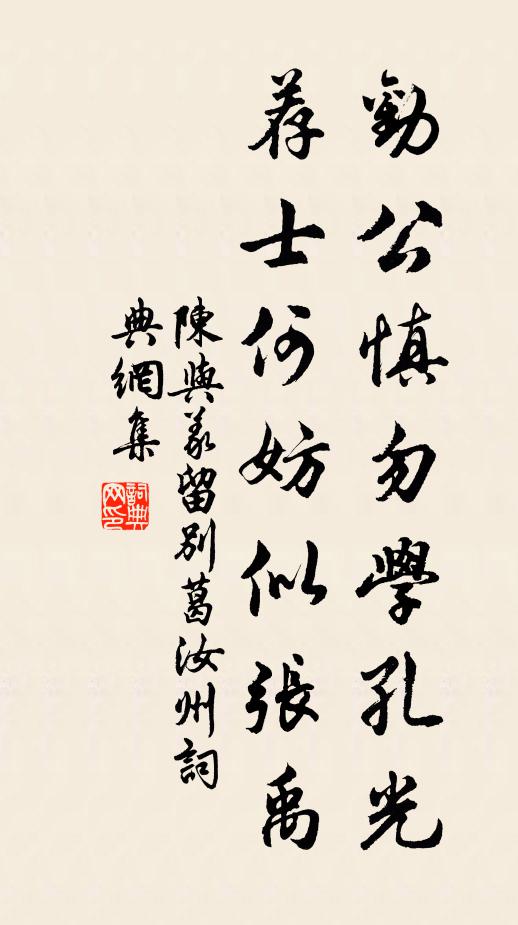 勸公慎勿學孔光
荐士何妨似張禹
陳與義留別葛汝州詞
典網集
詞典
网印